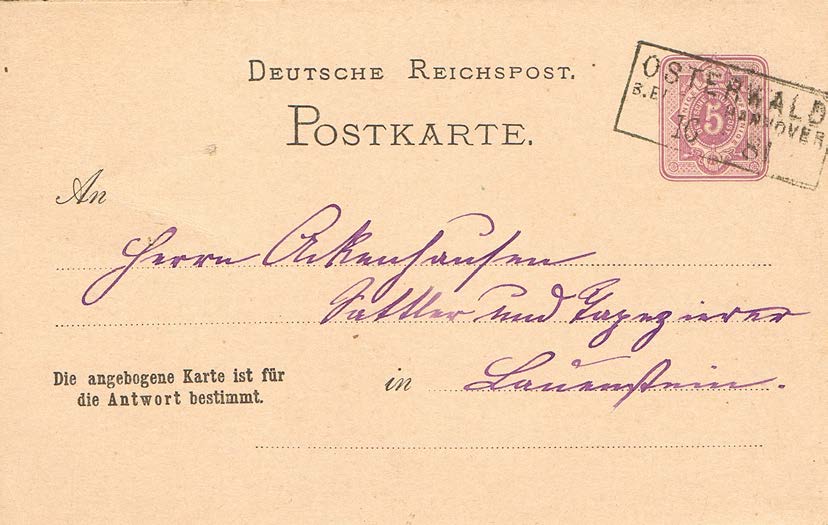 DEUTSCHE REICHSPOST.
POSTKARTE.
OSTERWALD
B.EI HANNOVER
5
An
Herrn Ackenhausen
Sattler und Tapezierer
Die angebogene Karte ist für
die Antwort bestimmt.
in Lauenstein.